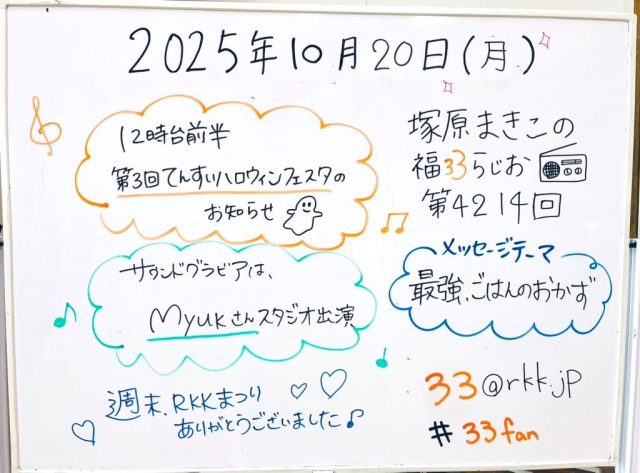 2025年10月20日(月)
12時台前半
第3回てんすいハロウィンフェスタの
お知らせ
サウンドグラビアは、
Myukさんスタジオ出演
週末、RKKまつり
ありがとうございました♪
塚原まきこの
福33らじお
第4214回
メッセージテーマ
最強、ごはんのおかず
33@rkk.jp
#33fan